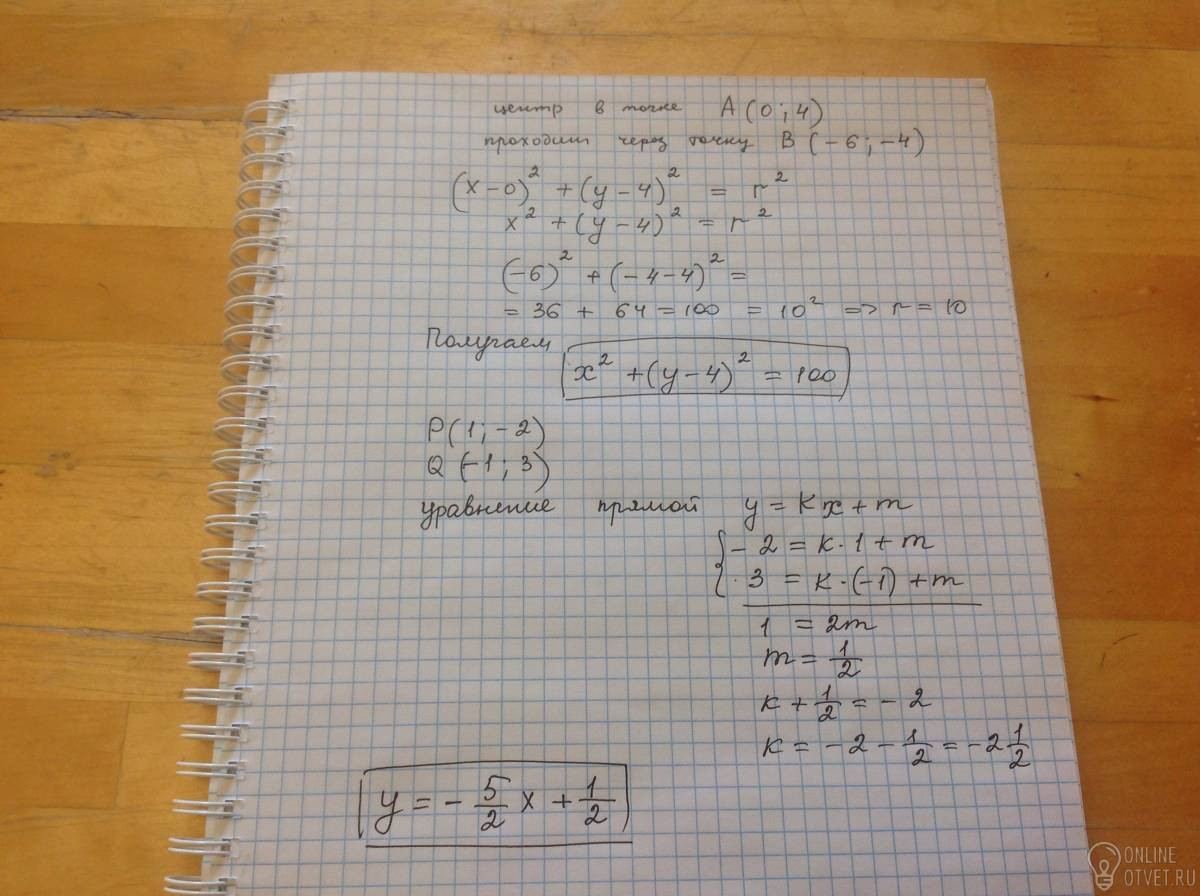 центр в точке A(0; 4)
проходит через точку B(-6; -4)
(x-0)² + (y-4)² = r²
x² + (y-4)² = r²
(-6)² + (-4-4)² =
= 36 + 64 = 100 = 10² => r = 10
Получаем x² + (y-4)² = 100
P(1; -2)
Q(-1; 3)
уравнение прямой y = kx + m
{ -2 = k·1 + m
3 = k·(-1) + m
1 = 2m
m = 1/2
k + 1/2 = -2
k = -2 - 1/2 = -2 1/2
y = - 5/2 x + 1/2
ONLINE
OTVET.RU